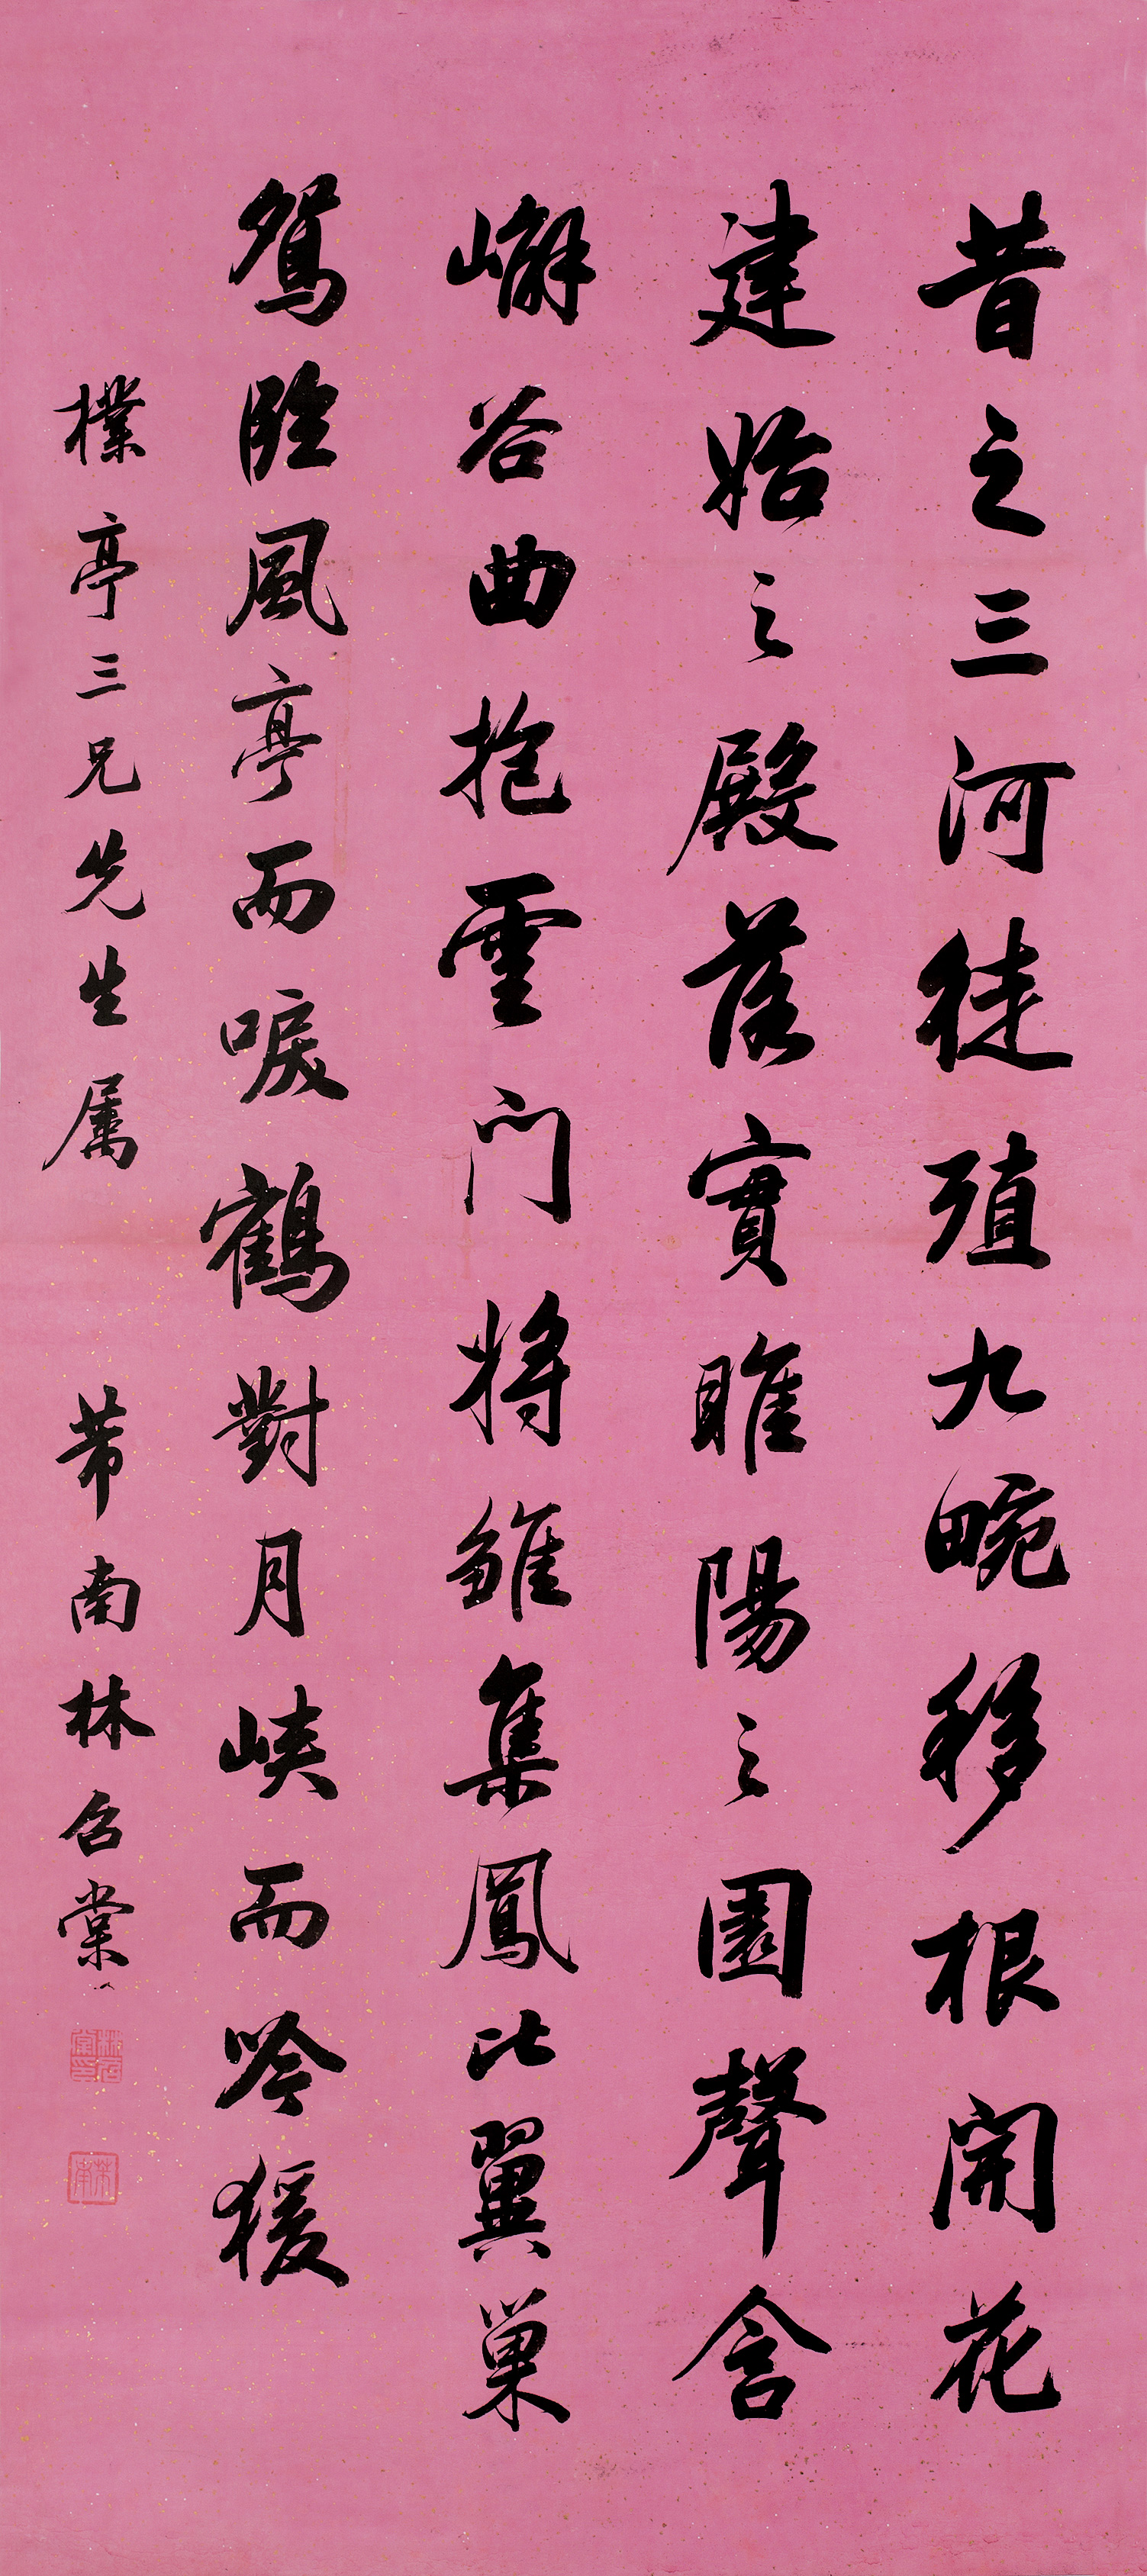 昔之三河徒殖九畹移根開花
建始之殿落實睢陽之園聲含
嶰谷曲抱雲門將雛集鳳比翼巢
鴛臨風亭而唳鶴對月峽而吟猨
樸亭三兄先生属
芾南林召棠
林召棠印
芾南